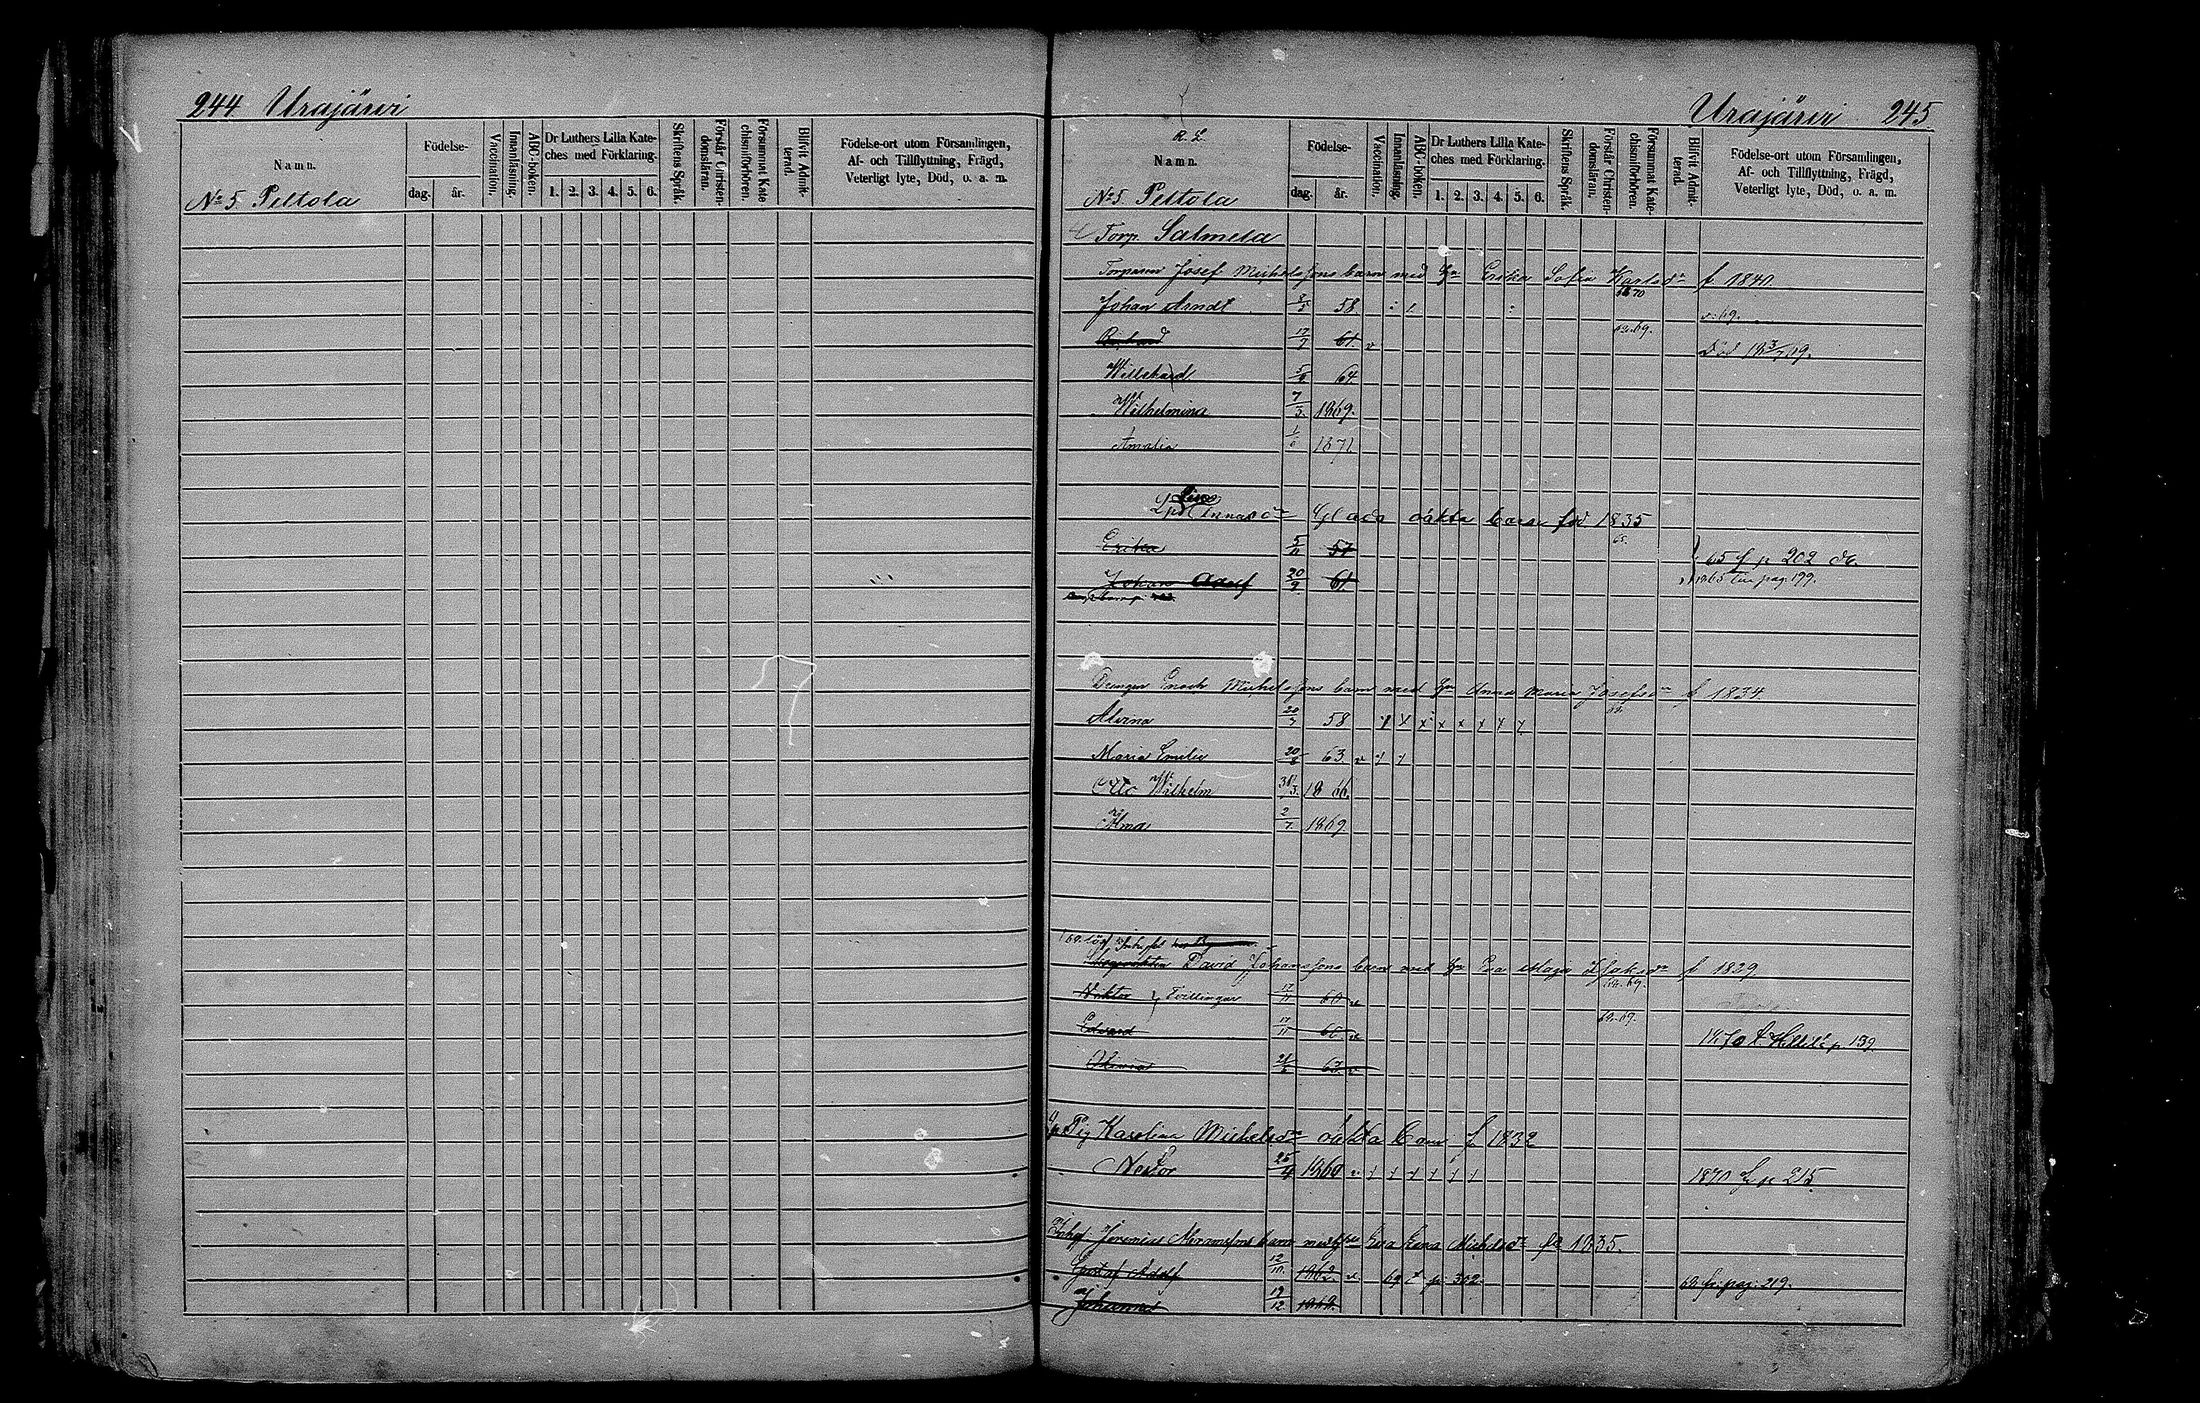 244 Urajärvi
Namn.
Födelse-
dag. år.
Vaccination.
Innanläsning.
ABC-boken.
Dr Luthers Lilla Kate-
ches med Förklaring.
1. 2. 3. 4. 5. 6.
Skriftens Språk.
Förstår Christen-
domsläran.
Försummat Kate-
chismiförhören.
Blifvit Admit-
terad.
Födelse-ort utom Församlingen,
Af- och Tillflyttning, Frägd,
Veterligt lyte, Död, o. a. m.
No 5 Peltola
Urajärvi 245
R. L.
Namn.
Födelse-
dag. år.
Vaccination.
Innanläsning.
ABC-boken.
Dr Luthers Lilla Kate-
ches med Förklaring.
1. 2. 3. 4. 5. 6.
Skriftens Språk.
Förstår Christen-
domsläran.
Försummat Kate-
chismiförhören.
Blifvit Admit-
terad.
Födelse-ort utom Församlingen,
Af- och Tillflyttning, Frägd,
Veterligt lyte, Död, o. a. m.
No 5 Peltola
Torp. Salmela
Torparen Josef Michelssons barn med Hu Erika Sofia Karlsdr f 1840
Johan Arndt 58 v. 69.
17/7 61 v 62.69. Död 18 3/7 69.
Willehard 5/9 64
Wilhelmina 7/3. 1869.
Amalia 1871
Annasdr Glada oäkta barn född 1835
Erika 5/11 57 65 f p 202
Johan Adolf 20/9 61 1865 pag. 199.
Drengen Enoch Michelssons barn med Hu Anna Maria Josefsdr f 1834
Alvina 20/7 58 x x x x x x
Maria Emilia 20 63. v
Otto Wilhelm 31/3. 18 66.
Alma 2/7. 1869
David Johanssons barn med Hu Eva Maja Isaksdr f 1829
Viktor } Tvillingar 17/11 60 v 62.69.
Edvard 17/11 60 v 62.69. 1870 p. 139.
63. v
Pig Karolina Michelsdr oäkta barn f 1832
Nestor 25/9 1860 v 1870 f p 215.
Inhys Jeremias Abramssons barn med Hu Lena Michelsdr fd 1835.
Gustaf Adolf 12/10. 1862 v 69 t p 302. 62 fr. pag. 219.
Johannes 19/12. 1868.